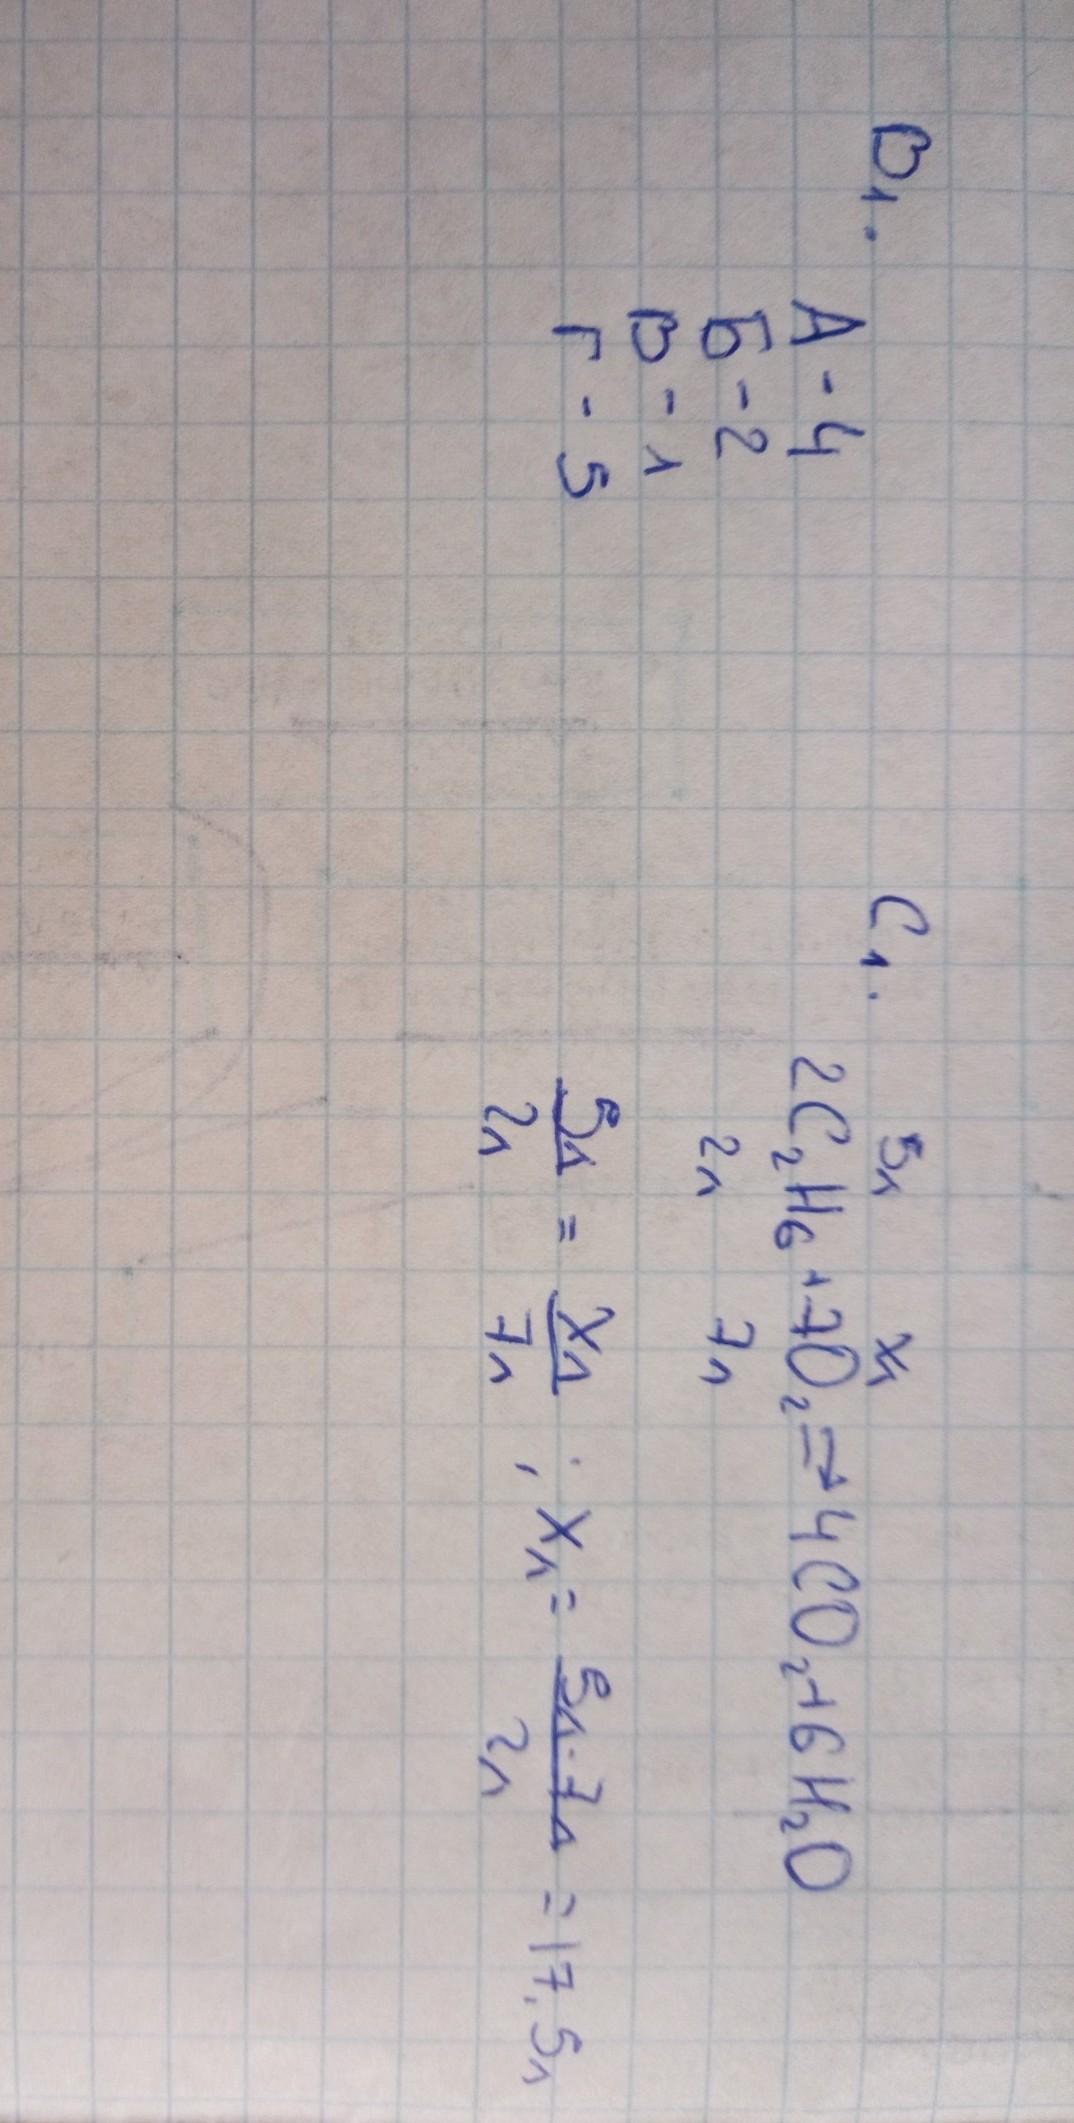 В1.
А - 4
Б - 2
В - 1
Г - 5
С1.
5л xл
2C₂H₆ + 7O₂ → 4CO₂ + 6H₂O
2л 7л
5л/2л = xл/7л ; xл = 5л·7л/2л = 17,5л